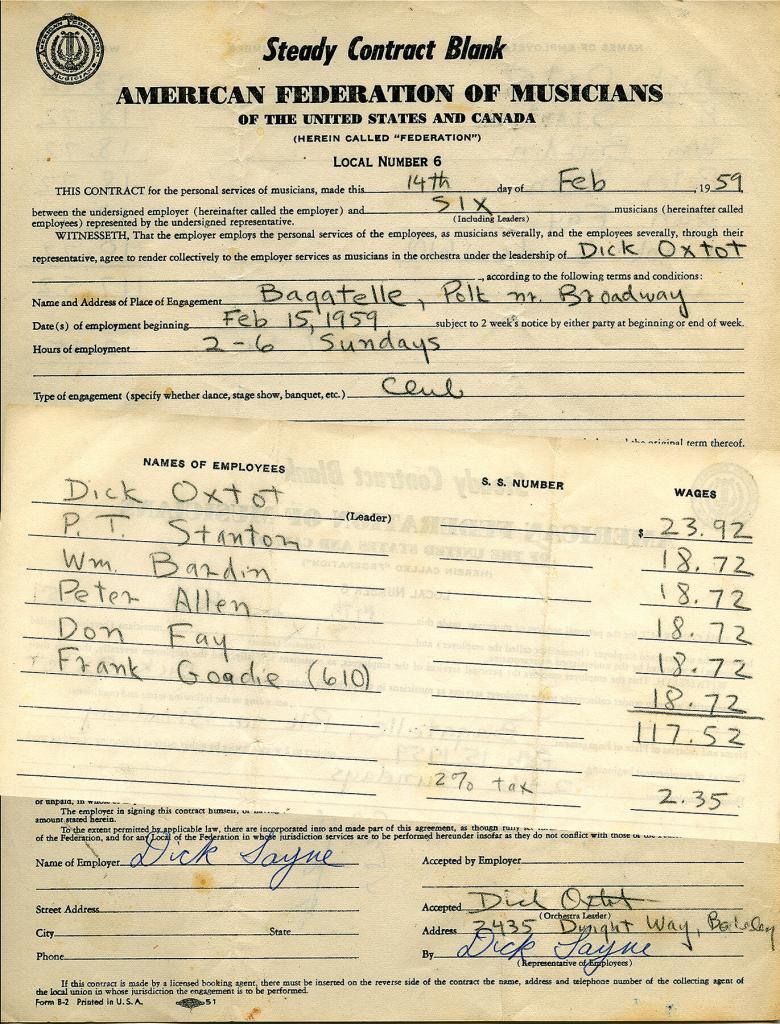 AMERICAN FEDERATION OF MUSICIANS
Steady Contract Blank
AMERICAN FEDERATION OF MUSICIANS
OF THE UNITED STATES AND CANADA
(HEREIN CALLED "FEDERATION")
LOCAL NUMBER 6
THIS CONTRACT for the personal services of musicians, made this 14th day of Feb, 1959
between the undersigned employer (hereinafter called the employer) and SIX musicians (hereinafter called
(Including Leaders)
employees) represented by the undersigned representative.
WITNESSETH, That the employer employs the personal services of the employees, as musicians severally, and the employees severally, through their
representative, agree to render collectively to the employer services as musicians in the orchestra under the leadership of Dick Oxtot
, according to the following terms and conditions:
Name and Address of Place of Engagement Bagatelle, Polk nr. Broadway
Date(s) of employment beginning Feb 15, 1959 subject to 2 week's notice by either party at beginning or end of week.
Hours of employment 2-6 Sundays
Type of engagement (specify whether dance, stage show, banquet, etc.) Club
the original term thereof.
NAMES OF EMPLOYEES S. S. NUMBER WAGES
Dick Oxtot (Leader) $ 23.92
P. T. Stanton 18.72
Wm. Bardin 18.72
Peter Allen 18.72
Don Fay 18.72
Frank Goadie (610) 18.72
117.52
2% tax 2.35
or unpaid, in whole
The employer in signing this contract himself,
amount stated herein.
To the extent permitted by applicable law, there are incorporated into and made part of this agreement, as though fully
of the Federation, and for any Local of the Federation in whose jurisdiction services are to be performed hereunder insofar as they do not conflict with those of the
Name of Employer Dick Sayne Accepted by Employer
Street Address Accepted Dick Oxtot
(Orchestra Leader)
City State Address 2435 Dwight Way, Berkeley
Phone By Dick Sayne
(Representative of Employees)
If this contract is made by a licensed booking agent, there must be inserted on the reverse side of the contract the name, address and telephone number of the collecting agent of
the local union in whose jurisdiction the engagement is to be performed.
Form B-2 Printed in U. S. A. 51